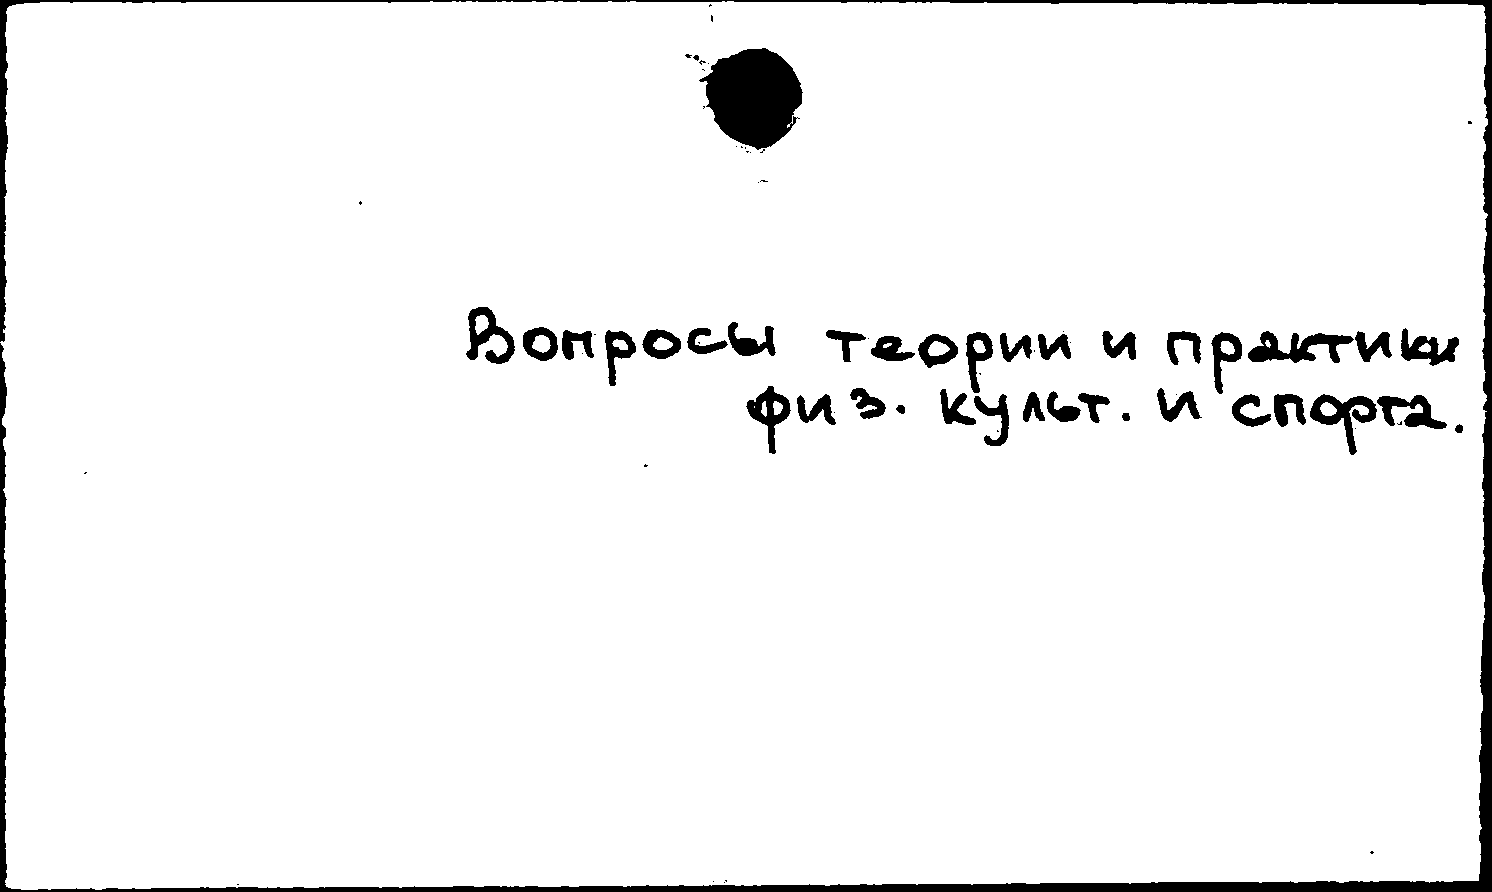 Вопросы теории и практики
физ. культ. и спорта.